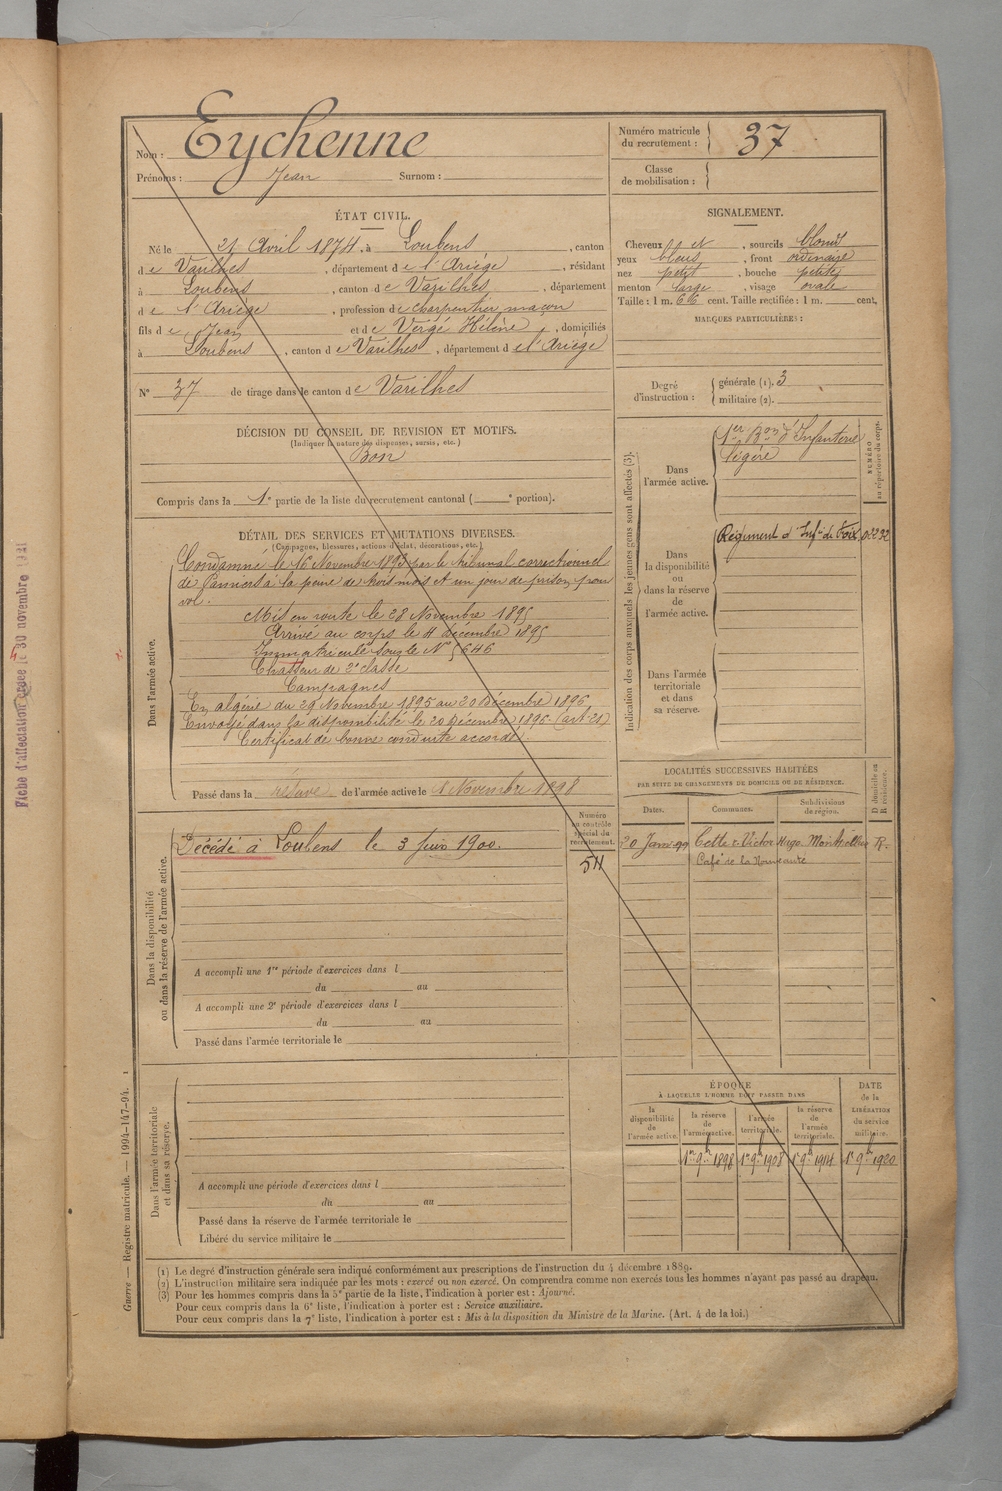 Nom : Eychenne
Prénoms : Jean Surnom :
Numéro matricule du recrutement : 37
Classe de mobilisation :
ÉTAT CIVIL.
Né le 21 Avril 1874, à Loubens, canton
de Varilhes, département de l'Ariège, résidant
à Loubens, canton de Varilhes, département
de l'Ariège, profession de charpentier maçon
fils de Jean et de Vergé Hélène, domiciliés
à Loubens, canton de Varilhes, département de l'Ariège
N° 37 de tirage dans le canton de Varilhes
SIGNALEMENT.
Cheveux et, sourcils blonds
yeux bleus, front ordinaire
nez petit, bouche petite
menton large, visage ovale
Taille : 1 m. 66 cent. Taille rectifiée : 1 m. cent.
MARQUES PARTICULIÈRES :
Degré d'instruction : générale (1). 3
militaire (2).
DÉCISION DU CONSEIL DE REVISION ET MOTIFS.
(Indiquer la nature des dispenses, sursis, etc.)
Bon
Compris dans la 1e partie de la liste du recrutement cantonal ( e portion).
DÉTAIL DES SERVICES ET MUTATIONS DIVERSES.
(Campagnes, blessures, actions d'éclat, décorations, etc.)
Dans l'armée active.
Condamné le 16 Novembre 1893 par le tribunal correctionnel
de Pamiers à la peine de trois mois et un jour de prison pour
vol.
Mis en route le 28 Novembre 1895
Arrivé au corps le 4 décembre 1895
Immatriculé sous le N° 5646
Chasseur de 2e classe
Campagnes
En algérie du 29 Novembre 1895 au 20 Décembre 1896
Envoyé dans la disponibilité le 20 décembre 1896 (art. 21)
Certificat de bonne conduite accordé.
Passé dans la réserve de l'armée active le 1 Novembre 1898
Indication des corps auxquels les jeunes gens sont affectés (3).
NUMÉRO au répertoire du corps.
Dans l'armée active.
1er Bon d'Infanterie
légère
Dans la disponibilité ou dans la réserve de l'armée active.
Régiment d'Infie de Foix
Dans l'armée territoriale et dans sa réserve.
Numéro au contrôle spécial du recrutement.
54
Dans la disponibilité ou dans la réserve de l'armée active.
Décédé à Loubens le 3 Juin 1900.
A accompli une 1re période d'exercices dans l
du au
A accompli une 2e période d'exercices dans l
du au
Passé dans l'armée territoriale le
LOCALITÉS SUCCESSIVES HABITÉES
PAR SUITE DE CHANGEMENTS DE DOMICILE OU DE RÉSIDENCE.
Dates. Communes. Subdivisions de région. D domicile ou R résidence.
20 Janv 99 Cette r. Victor Hugo Montpellier R.
Café de la
Dans l'armée territoriale et dans sa réserve.
A accompli une période d'exercices dans l
du au
Passé dans la réserve de l'armée territoriale le
Libéré du service militaire le
ÉPOQUE
À LAQUELLE L'HOMME DOIT PASSER DANS
la disponibilité de l'armée active.
la réserve de l'armée active.
l'armée territoriale.
la réserve de l'armée territoriale.
DATE de la LIBÉRATION du service militaire.
1er 9bre 1898 1er 9bre 1908 1er 9bre 1914 1er 9bre 1920
(1) Le degré d'instruction générale sera indiqué conformément aux prescriptions de l'instruction du 4 décembre 1889.
(2) L'instruction militaire sera indiquée par les mots : exercé ou non exercé. On comprendra comme non exercés tous les hommes n'ayant pas passé au drapeau.
(3) Pour les hommes compris dans la 5e partie de la liste, l'indication à porter est : Ajourné.
Pour ceux compris dans la 6e liste, l'indication à porter est : Service auxiliaire.
Pour ceux compris dans la 7e liste, l'indication à porter est : Mis à la disposition du Ministre de la Marine. (Art. 4 de la loi.)
Guerre — Registre matricule. — 1994-147-94. 1
Fiche d'affectation créée le 30 novembre